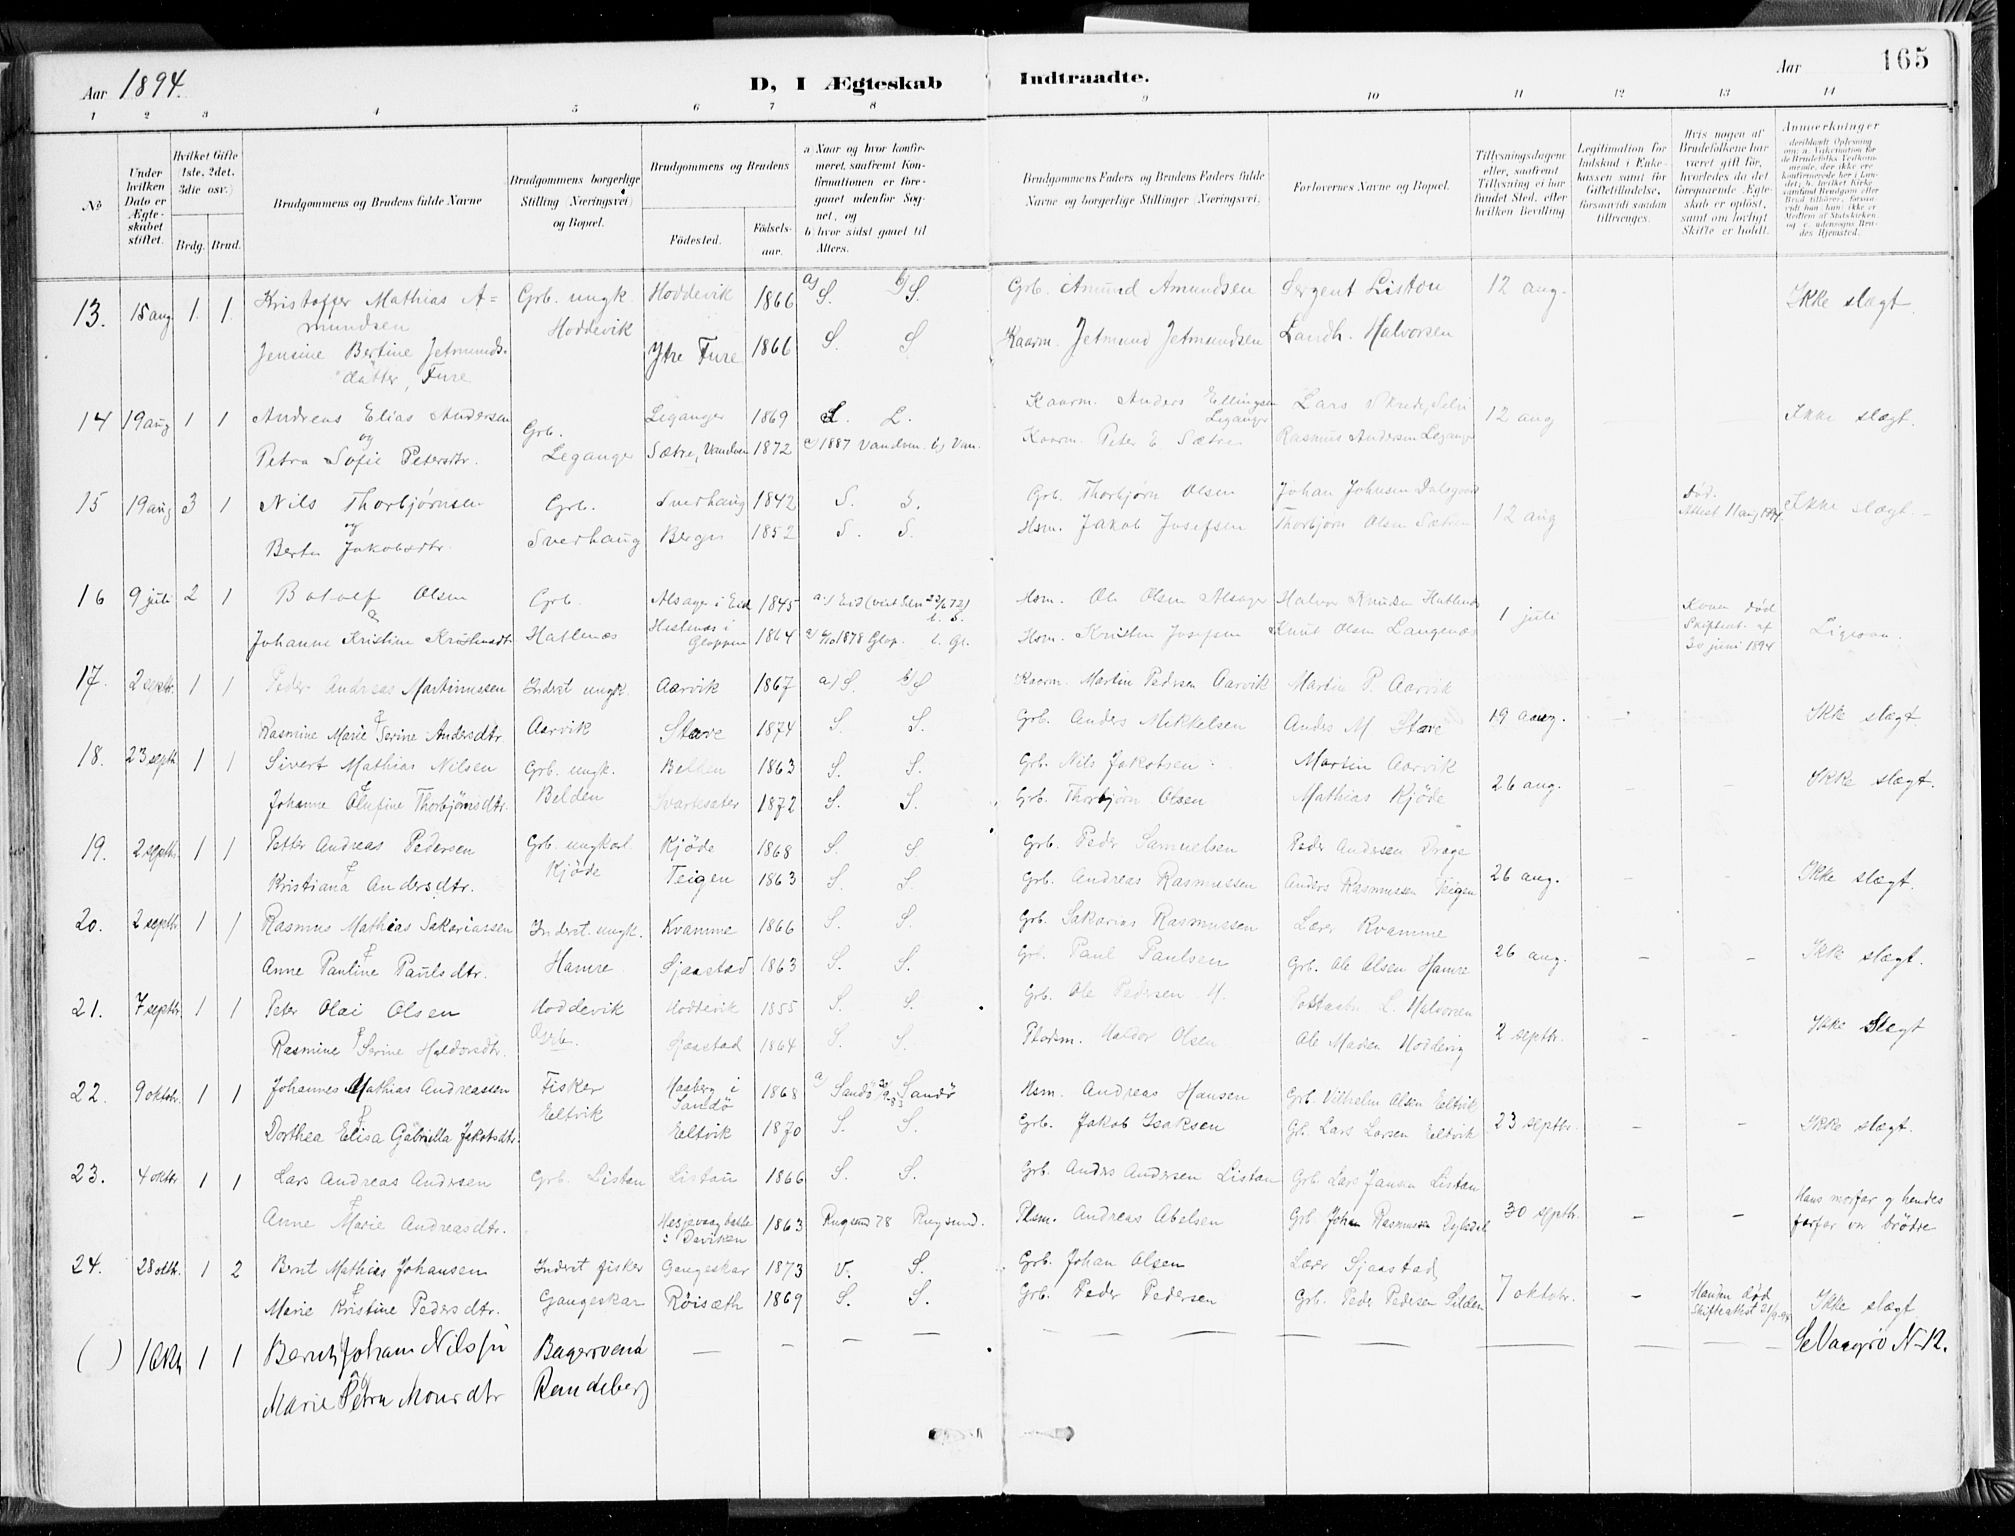 Aar 1894.
D, I Ægteskab
Indtraadte.
Aar
165
1 2 3 4 5 6 7 8 9 10 11 12 13 14
No
Under hvilken Dato er Ægteskabet stiftet.
Hvilket Gifte (1ste, 2det, 3die osv.)
Brdg. Brud.
Brudgommens og Brudens fulde Navne
Brudgommens borgerlige Stilling (Næringsvei) og Bopæl.
Brudgommens og Brudens
Fødested.
Fødselsaar.
a Naar og hvor konfirmeret, saafremt Konfirmationen er foregaaet udenfor Sognet, og
b) hvor sidst gaaet til Alters.
Brudgommens Faders og Brudens Faders fulde Navne og borgerlige Stillinger (Næringsvei).
Forlovernes Navne og Bopæl.
Tillysningsdagene eller, saafremt Tillysning ei har fundet Sted, efter hvilken Bevilling
Legitimation for Indskud i Enkekassen samt for Giftetilladelse, forsaavidt saadan tiltrænges.
Hvis nogen af Brudefolkene har været gift før, hvorledes da det foregaaende Ægteskab er opløst, samt om lovligt Skifte er holdt.
Anmerkninger
13. 15 aug 1. 1. Kristoffer Mathias A= Grb. ungk. Hoddevik 1866 a) S. b) S. Grb. Amund Amundsen Sergent Listou 12 aug. Ikke slægt.
mundsen Hoddevik
Jensine Bertine Jetmunds- Ytre Fure 1866 S. S. Kaarm. Jetmund Jetmundsen Landh. Halvorsen
datter, Fure
14 19 aug 1 1 Andreas Elias Andersen Grb. Leganger 1869 L. L. Kaarm. Anders Ellingsen Leganger Lars 12 aug Ikke slægt.
og
Petra Sofie Petersdtr. Leganger Sætre, Vandven 1872 a) 1887 Vandven. b) Van. Kaarm. Peter E Sætre Rasmus Andersen Leganger
15 19 aug 3 1 Nils Thorbjørnsen Grb. Sverhaug 1842 S. S. Grb. Thorbjørn Olsen Johan Johnsen 12 aug Død. Attest 11 aug 1894 Ikke slægt.
og
Berte Jakobsdtr. Sverhaug Berge 1852 S. S. Hsm. Jakob Josefsen Thorbjørn Olsen
16 9 juli 2 1 Botolf Olsen Grb. Alsager i Eid 1845 a) Eid b. S. Hsm. Ole Olsen Alsager Halvor Knudsen Hatlenæs 1 juli Konen død Skifteat. af 30 juni 1894
Johanne Kristine Kristensdtr. Hatlenæs Hestenæs i Gloppen 1864 1878 Glop. b. Gl. Hsm. Kristen Josefsen Knut Olsen Langenæs
17. 2 septr. 1 1 Peder Andreas Martinussen Inderst ungk. Aarvik 1867 a) S. b) S Kaarm. Martin Pedersen Aarvik Martin P. Aarvik
&
Rasmine Marie Serine Andersdtr Aarvik Stave 1874 S. S. Grb. Anders Mikkelsen Anders M Stave 19 aug. Ikke slægt
18. 23 septr. 1 1 Sivert Mathias Nilsen Grb. ungk. Belden 1863 S. S. Grb. Nils Jakobsen Martin Aarvik 26 aug. Ikke slægt.
&
Johanne Olufine Thorbjørnsdtr. Belden Svartesæter 1872 S. S. Grb. Thorbjørn Olsen Mathias Kjøde
19. 2 septr. 1 1 Petter Andreas Pedersen Grb. ungkarl Kjøde 1868 S. S. Grb. Peder Samuelsen Peder Andersen Drage 26 aug. Ikke slægt.
&
Kristiana Andersdtr. Kjøde Teigen 1863 S. S. Grb. Andreas Rasmussen Anders Rasmussen Teigen
20. 2 septr. 1 1 Rasmus Mathias Sakariassen Inderst. ungk. Kvamme 1866 S. S. Grb. Sakarias Rasmussen Lærer Kvamme 26 aug. – – Ikke slægt.
&
Anne Pauline Paulsdtr. Hamre Sjaastad 1863 S. S. Grb. Paul Paulsen Grb. Ole Olsen Hamre
21. 7 septr. 1 1 Peter Olai Olsen Hoddevik Hoddevik 1855 S. S. Grb. Ole Pedersen H. Postaabn L. Halvorsen 2 septbr. – – Ikke Slegt
&
Rasmine Serine Haldorsdtr. Grb. Sjaastad 1864 S. S. Pladsm. Haldor Olsen Ole Madsen Hoddevig
22. 9 oktobr. 1 1 Johannes Mathias Andreassen Fisker Haaberg i Sandø 1868 a) Sandø Sandø Hsm. Andreas Hansen Grb. Vilhelm Olsen Eltvik 23 septbr. – – Ikke slægt.
&
Dorthea Elisa Gabriella Jakobsdtr. Eltvik Eltvik 1870 S. S. Grb. Jakob Isaksen Gb. Lars Larsen Eltvik
23. 4 oktbr 1 1 Lars Andreas Andersen Grb. Listau Listau 1866 S. S. Grb. Anders Andersen Listau Grb Lars Jansen Listau 30 septbr. – – Hans morfar og hendes farfar var brødre
&
Anne Marie Andreasdtr. i Daviken 1863 Rugsund 78 Rugsund. Plsm. Andreas Abelsen Grb. Johan Rasmussen
24. 28 oktbr. 1 2 Bernt Mathias Johansen Inderst fisker Gangeskar 1873 V. S. Grb. Johan Olsen Lærer Sjaastad 7 oktobr. – Manden død Skifteattest 21/9-94 Ikke slægt
&
Marie Kristine Pedersdtr. Gangeskar Røisæth 1869 S. S. Grb. Peder Pedersen Grb. Peder Pedersen Silden
( ) 1 Okt 1 1 Bernt Johan Nilssen Bagersvend – – – – – – – – Se Vaagsø N-12.
og
Marie Petra Monsdtr Randeberg